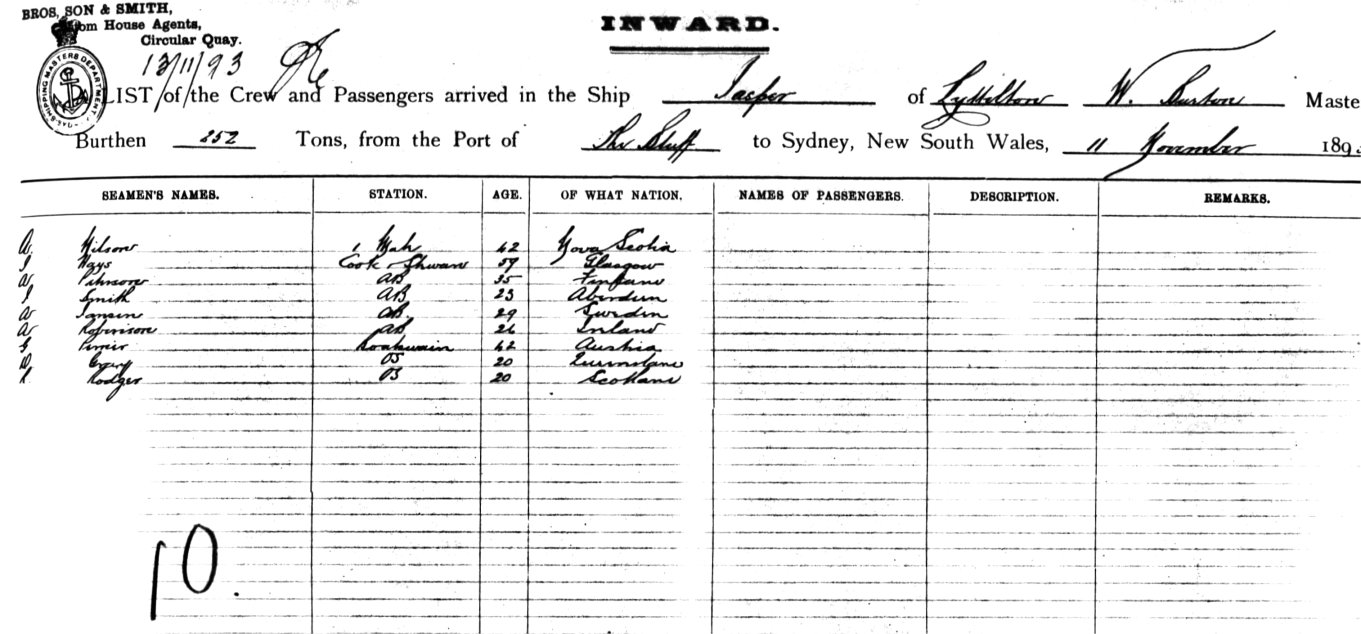 BROS, SON & SMITH,
om House Agents,
Circular Quay.
INWARD.
SHIPPING MASTERS DEPARTMENT
13/11/93
LIST of the Crew and Passengers arrived in the Ship Jasper of Lyttelton W. Burton Maste
Burthen 252 Tons, from the Port of The Bluff to Sydney, New South Wales, 11 November 189
SEAMEN'S NAMES. STATION. AGE. OF WHAT NATION. NAMES OF PASSENGERS. DESCRIPTION. REMARKS.
Wilson 1 Mate 42 Nova Scotia
J Hays Cook & Steward 59 Glasgow
W 35 Finland
AB
J Smith AB 23 Aberdeen
W Jansen AB 29 Sweden
W Robinson AB 26
G Boatswain 42 Austria
W OS 20 Queensland
R Rodger OS 20 Scotland
10.